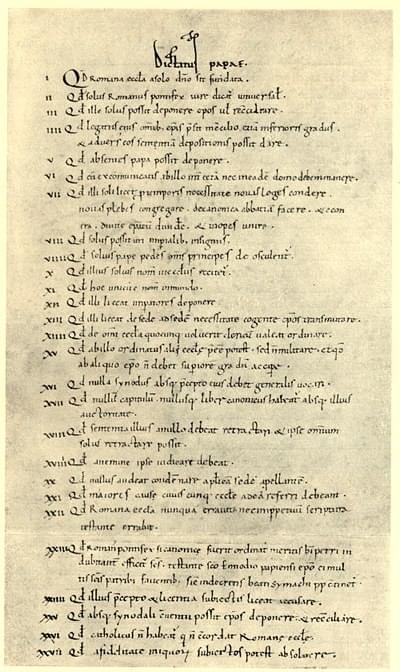 Dictatus papae.
I Qd Romana eccla a solo dno sit fundata.
II Qd solus Romanus pontifex iure dicat universal.
III Qd ille solus possit deponere epos ul reconciliare.
IIII Qd legatus eius omib. epis presit in concilio, etiam inferioris gradus,
& adversus eos sententiam depositionis possit dare.
V Qd absentes papa possit deponere.
VI Qd cu excomunicatis ab illo int cetera nec in eade domo debemus manere.
VII Qd illi soli licet p temporis necessitate novas leges condere,
novas plebes congregare, de canonica abbatiam facere, & econ
tra, divite epatu divide, & inopes unire.
VIII Qd solus possit uti impialib. insigniis.
VIIII Qd solius pape pedes oms principes deosculent.
X Qd illius solius nom in ecclesiis recitet.
XI Qd hoc unicu e nom in mundo.
XII Qd illi liceat impatores deponere.
XIII Qd illi liceat de sede ad sedem necessitate cogente epos transmutare.
XIIII Qd de omi eccla quocunq voluerit clericu valeat ordinare.
XV Qd ab illo ordinatus alii eccle pesse potest, sed n militare; et qd
ab aliquo epo n debet superiore gradu accipe.
XVI Qd nulla synodus absq pcepto eius debet generalis vocari.
XVII Qd nullu capitulu nullusq liber canonicus habeat absq illius
auctoritate.
XVIII Qd sententia illius a nullo debeat retractari & ipse omnium
solus retractare possit.
XVIIII Qd a nemine ipse iudicare debeat.
XX Qd nullus audeat condemnare aplica sede apellante.
XXI Qd maiores cause cuiuscunq eccle ad ea referri debeant.
XXII Qd Romana eccla nunqua erravit nec inppetuu scriptura
testante errabit.
XXIII Qd Roman pontifex si canonice fuerit ordinat meritis bi petri in
dubitant effici scs testante sco Ennodio papiensi epo ei mul
tis scis patrib faventib. sic in decretis beati Symachi pp continet.
XXIIII Qd illius pcepto & licentia subiectis liceat accusare.
XXV Qd absq synodali conventu possit epos deponere & reconciliare.
XXVI Qd catholicus n habeat q n concordat Romane eccle.
XXVII Qd a fidelitate iniquor subiectos potest absolvere.